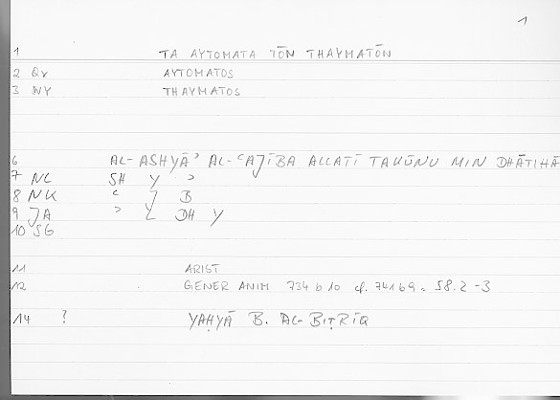 1
1 TA AYTOMATA TŌN THAYMATŌN
2 QY AYTOMATOS
3 NY THAYMATOS
6 AL-ASHYĀʾ AL-ʿAJĪBA ALLATĪ TAKŪNU MIN DHĀTIHĀ
7 NL SH Y ʾ
8 NK ʿ J B
9 JA ʾ L DH Y
10 SG
11 ARIST
12 GENER ANIM 734 b 10 cf. 741 b 9 = 58.2-3
14 ? YAḤYĀ B. AL-BIṬRĪQ